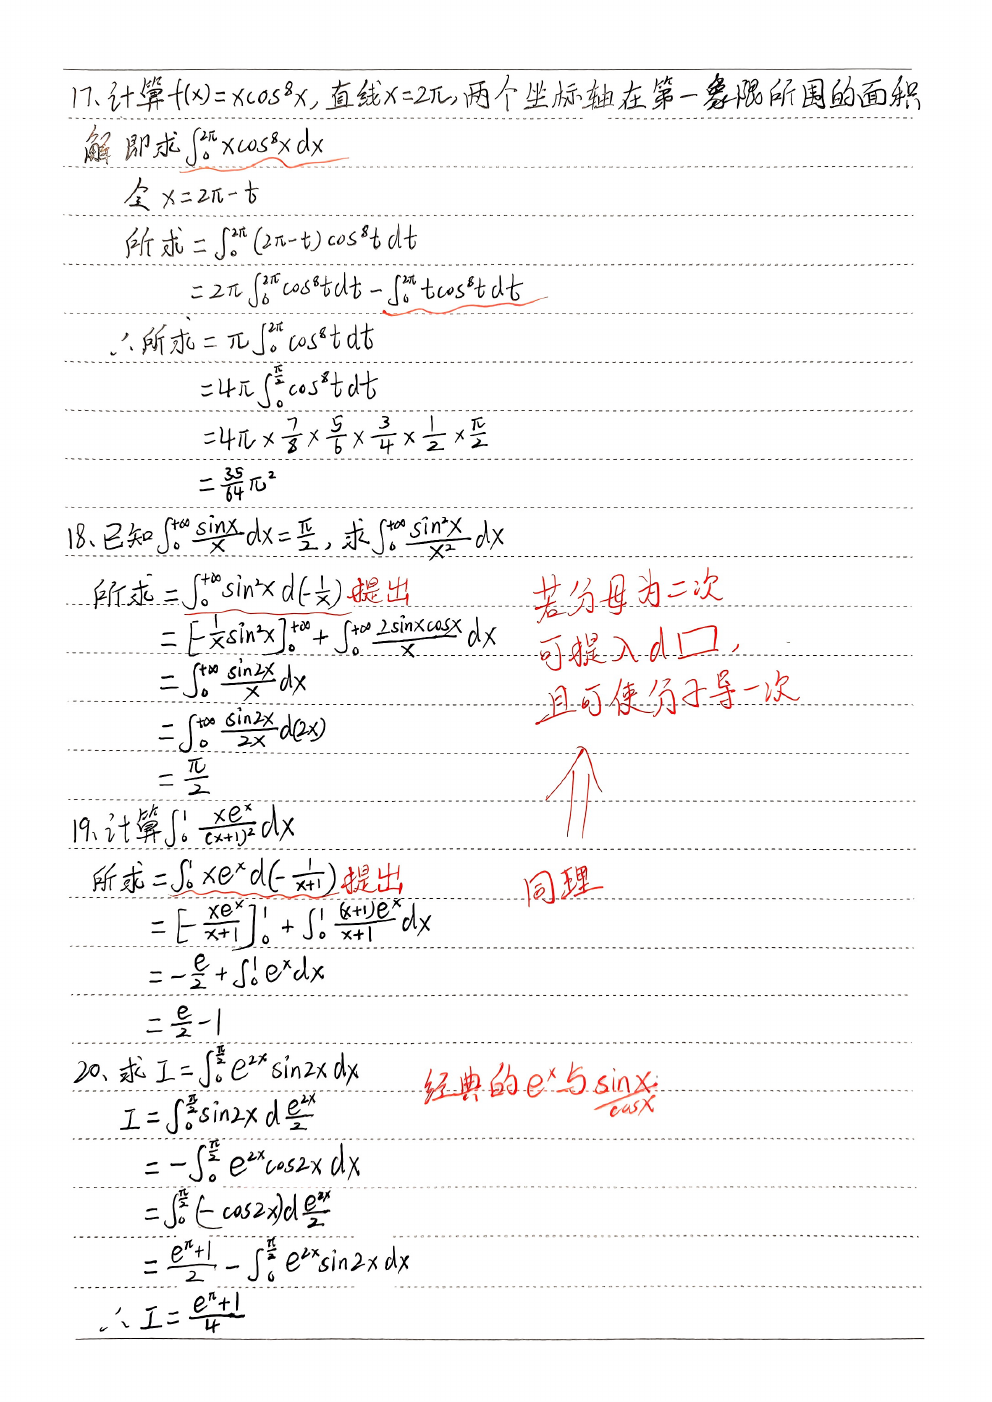 17、计算f(x)=xcos⁸x,直线x=2π,两个坐标轴在第一象限所围的面积
解 即求∫₀^{2π} xcos⁸x dx
令 x=2π-t
所求=∫₀^{2π} (2π-t) cos⁸t dt
=2π∫₀^{2π} cos⁸t dt - ∫₀^{2π} tcos⁸t dt
∴所求=π∫₀^{2π} cos⁸t dt
=4π∫₀^{π/2} cos⁸t dt
=4π×7/8×5/6×3/4×1/2×π/2
=35/64 π²
18、已知∫₀^{+∞} sinx/x dx=π/2,求∫₀^{+∞} sin²x/x² dx
所求=∫₀^{+∞} sin²x d(-1/x) 提出
=[-1/x sin²x]₀^{+∞}+∫₀^{+∞} 2sinxcosx/x dx
=∫₀^{+∞} sin2x/x dx
=∫₀^{+∞} sin2x/2x d(2x)
=π/2
若分母为二次
可提入d□,
且可使分子导一次
19、计算∫₀¹ xeˣ/(x+1)² dx
所求=∫₀¹ xeˣ d(-1/(x+1)) 提出
同理
=[-xeˣ/(x+1)]₀¹+∫₀¹ (x+1)eˣ/(x+1) dx
=-e/2+∫₀¹ eˣdx
=e/2-1
20、求 I=∫₀^{π/2} e^{2x} sin2x dx
经典的eˣ与sinx/cosx
I=∫₀^{π/2} sin2x d e^{2x}/2
=-∫₀^{π/2} e^{2x}cos2x dx
=∫₀^{π/2} (-cos2x)d e^{2x}/2
=(e^π+1)/2-∫₀^{π/2} e^{2x}sin2x dx
∴I=(e^π+1)/4